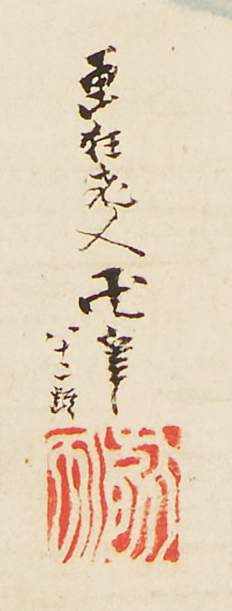 画狂老人卍筆
八十二齢